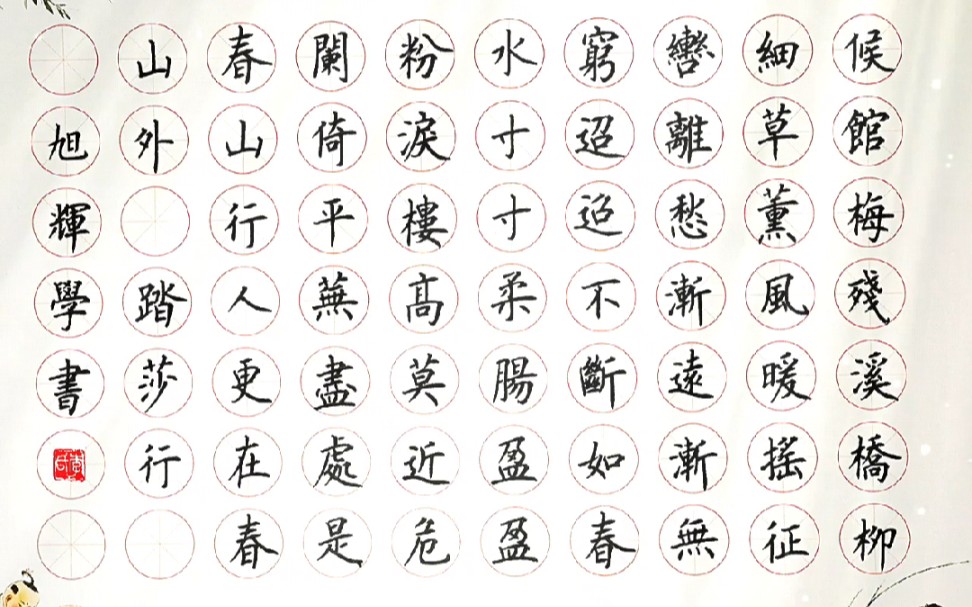 候館梅殘溪橋柳
細草薰風暖搖征
轡離愁漸遠漸無
窮迢迢不斷如春
水寸寸柔腸盈盈
粉淚樓高莫近危
闌倚平蕪盡處是
春山行人更在春
山外 踏莎行
旭輝學書